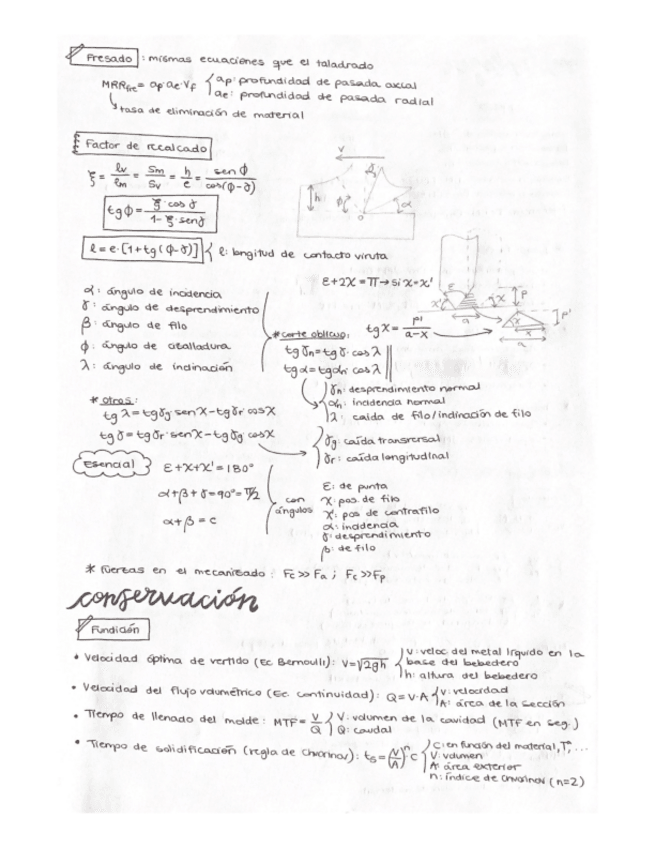 Fresado : mismas ecuaciones que el taladrado
MRRfre = ap·ae·Vf { ap: profundidad de pasada axial
ae: profundidad de pasada radial
↳ tasa de eliminación de material
Factor de recalcado
ξ = lv/lm = Sm/Sv = h/e = sen ϕ/cos(ϕ-γ)
tgϕ = ξ·cos γ/1-ξ·senγ
l = e·[1+tg(ϕ-γ)] { l: longitud de contacto viruta
V
h
ϕ
α
O
ε+2χ = π → si χ=χ'
α: ángulo de incidencia
γ: ángulo de desprendimiento
β: ángulo de filo
ϕ: ángulo de cizalladura
λ: ángulo de inclinación
* corte oblicuo: tgχ = p'/a-x
tgγn = tgγ·cosλ
tgα = tgαn·cosλ
γn: desprendimiento normal
αn: incidencia normal
λ: caída de filo/inclinación de filo
* otros:
tgλ = tgγg·senχ - tgγr·cosχ
tgγ = tgγr·senχ - tgγg·cosχ
γg: caída transversal
γr: caída longitudinal
Esencial
ε+χ+χ' = 180°
α+β+γ = 90° = π/2
α+β = c
con ángulos
ε: de punta
χ: pos. de filo
χ': pos de contrafilo
α: incidencia
γ: desprendimiento
β: de filo
* Fuerzas en el mecanizado : Fc >> Fa ; Fc >> Fp
conservación
Fundición
• Velocidad óptima de vertido (Ec Bernoulli): V=√2gh { V: veloc del metal líquido en la
base del bebedero
h: altura del bebedero
• Velocidad del flujo volumétrico (Ec. continuidad): Q = V·A { V: velocidad
A: área de la sección
• Tiempo de llenado del molde: MTF = V/Q { V: volumen de la cavidad (MTF en seg.)
Q: caudal
• Tiempo de solidificación (regla de Chvorinov): ts = (V/A)ⁿ·C { C: en función del material, Tª, ...
V: volumen
A: área exterior
n: índice de Chvorinov (n=2)